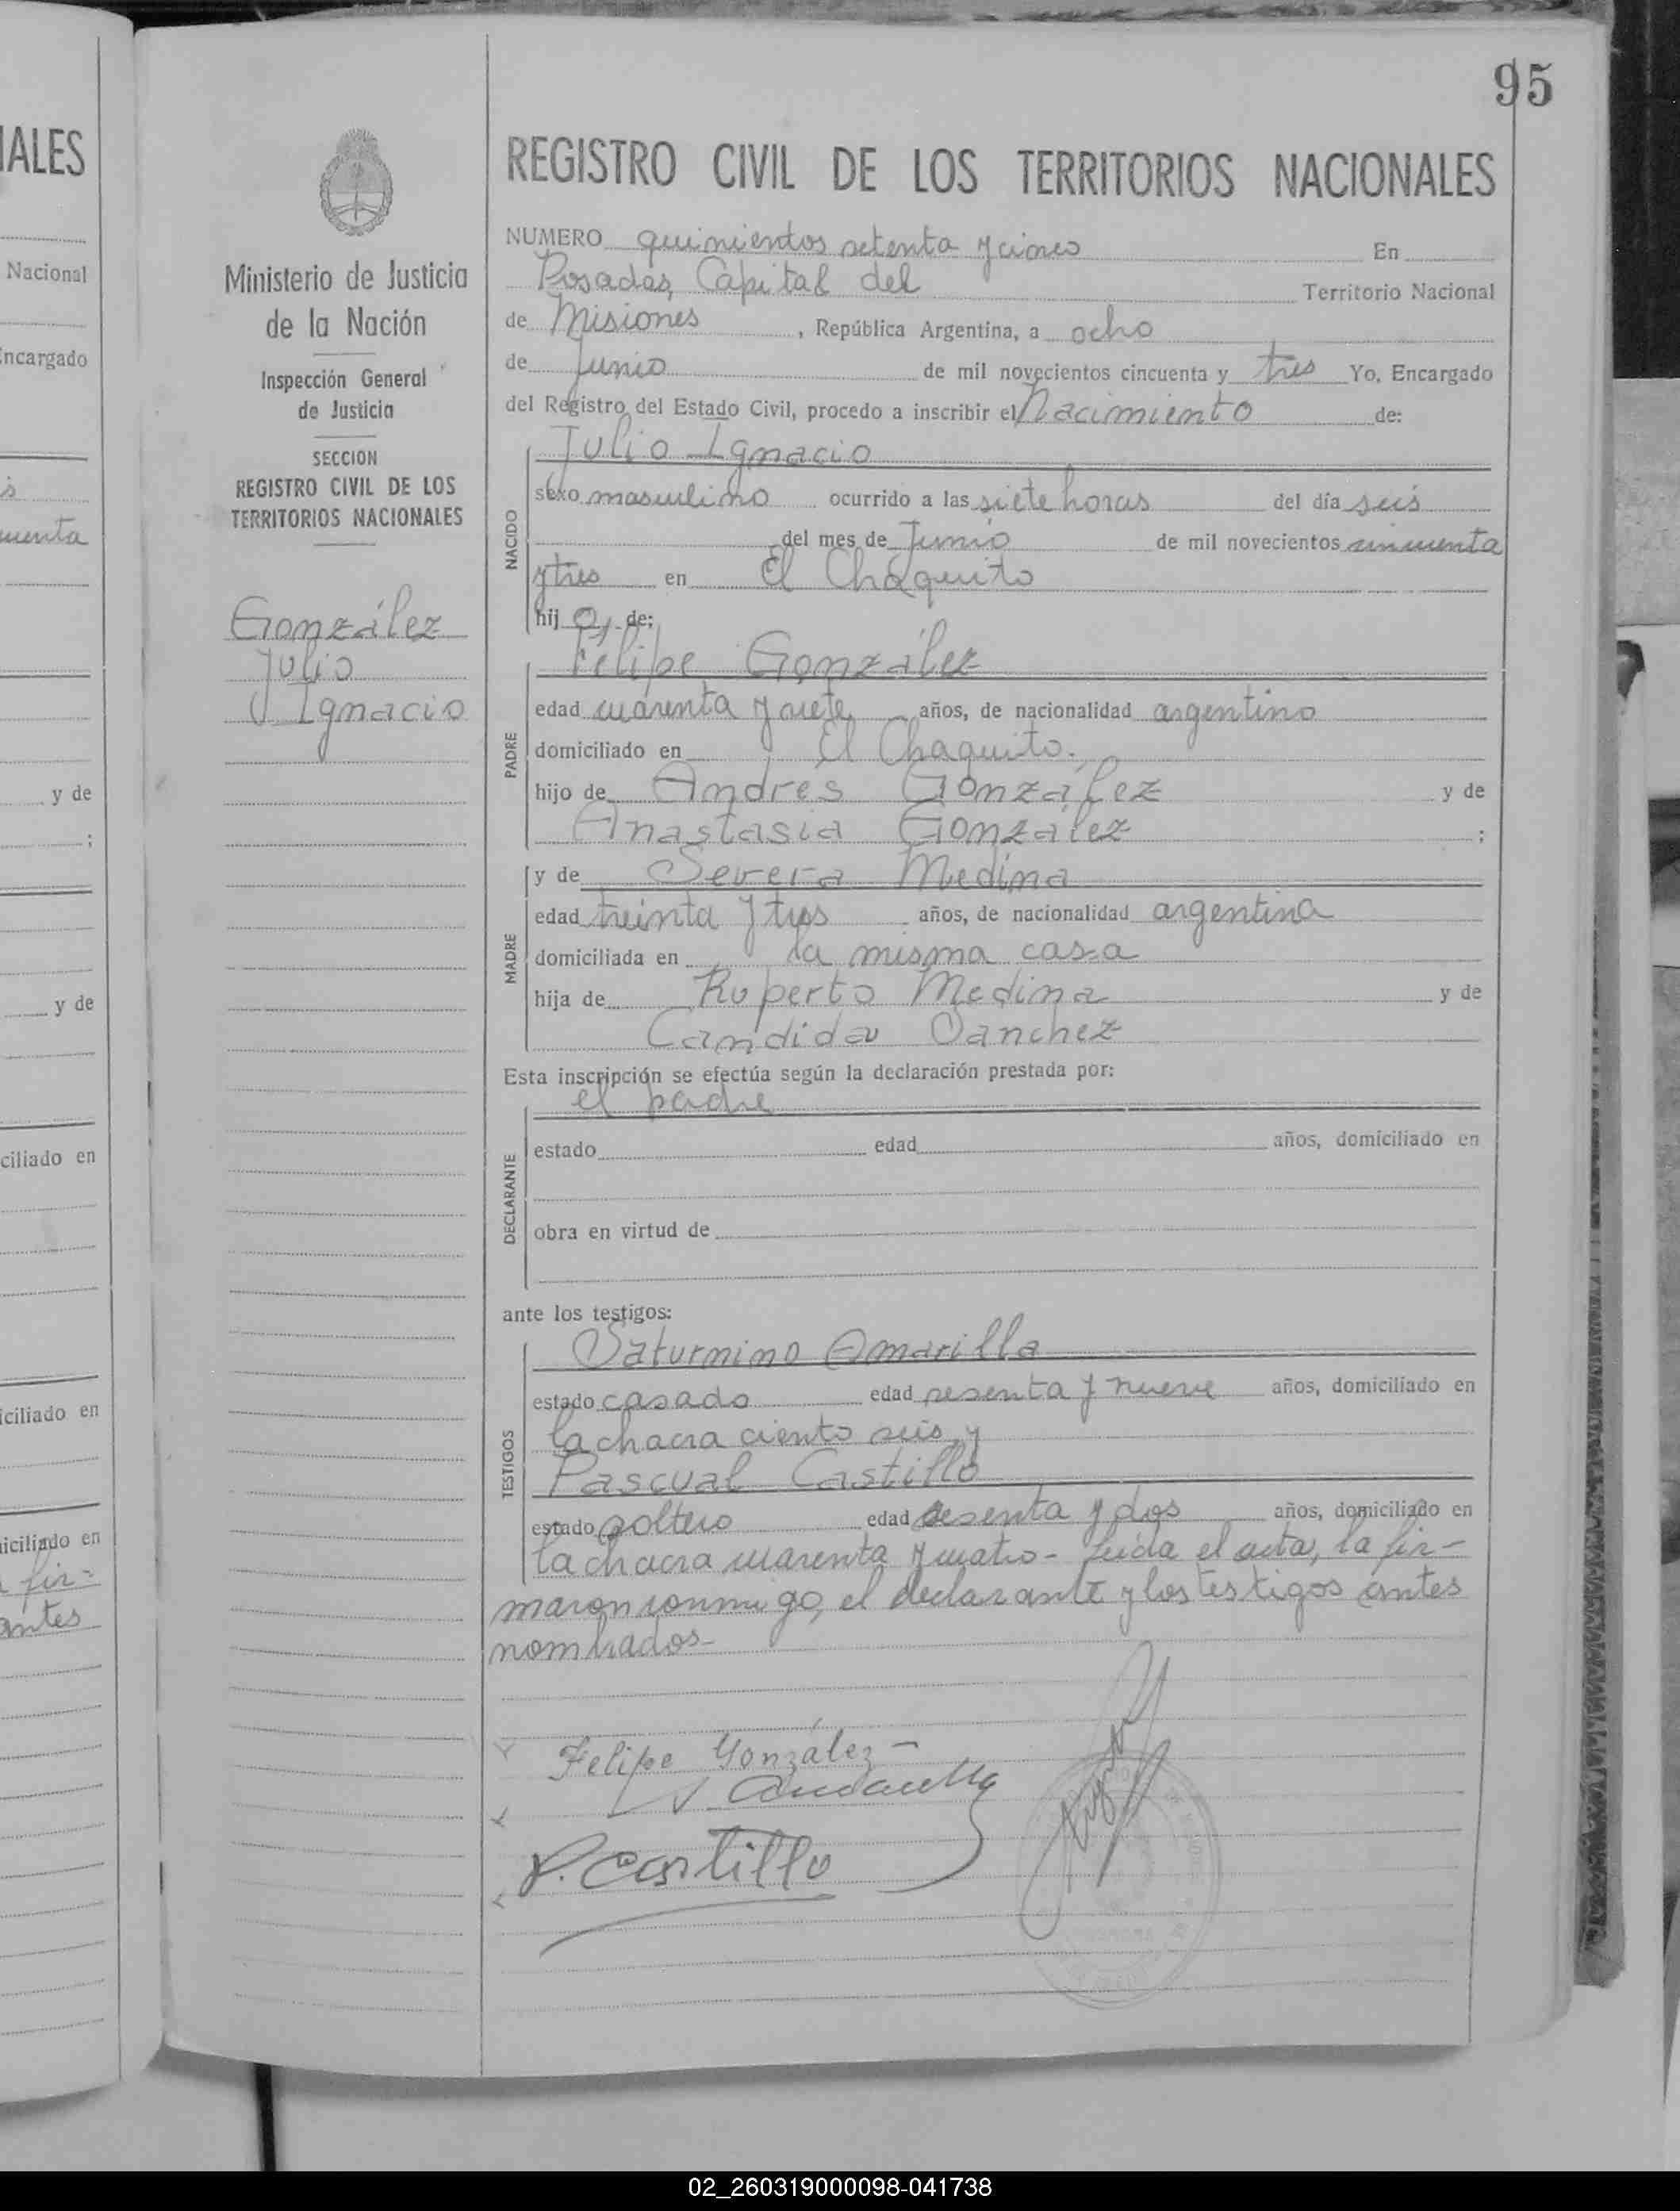 95
IALES
Nacional
Encargado
y de
;
y de
ciliado en
iciliado en
iciliado en
fir=
antes
Ministerio de Justicia
de la Nación
Inspección General
de Justicia
SECCION
REGISTRO CIVIL DE LOS
TERRITORIOS NACIONALES
González
Julio
Ignacio
REGISTRO CIVIL DE LOS TERRITORIOS NACIONALES
NUMERO quinientos setenta y cinco En
Posadas, Capital del Territorio Nacional
de Misiones, República Argentina, a ocho
de Junio de mil novecientos cincuenta y tres Yo, Encargado
del Registro del Estado Civil, procedo a inscribir el Nacimiento de:
Julio Ignacio
NACIDO
sexo masculino ocurrido a las siete horas del día seis
del mes de Junio de mil novecientos cincuenta
y tres en El Chaquito
hijo, de:
Felipe González
PADRE
edad cuarenta y siete años, de nacionalidad argentino
domiciliado en El Chaquito.
hijo de Andrés González y de
Anastasia González ;
y de Severa Medina
MADRE
edad treinta y tres años, de nacionalidad argentina
domiciliada en la misma casa
hija de Ruperto Medina y de
Candida Sanchez
Esta inscripción se efectúa según la declaración prestada por:
el padre
DECLARANTE
estado edad años, domiciliado en
obra en virtud de
ante los testigos:
Saturnino Amarilla
TESTIGOS
estado casado edad sesenta y nueve años, domiciliado en
la chacra ciento seis, y
Pascual Castillo
estado soltero edad sesenta y dos años, domiciliado en
la chacra cuarenta y cuatro - Leída el acta, la fir-
maron conmigo, el declarante y los testigos antes
nombrados-
Felipe González -
P. Castillo
02_260319000098-041738